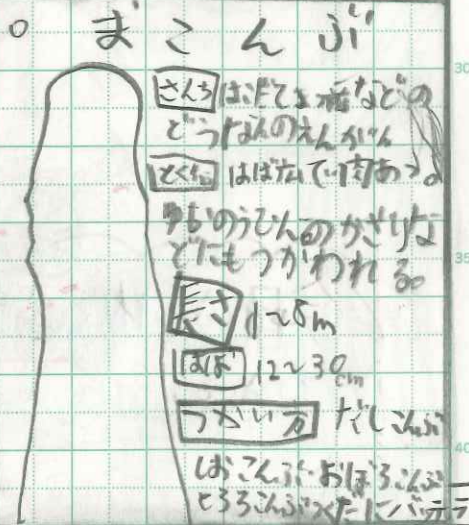 まこんぶ
さんち はこだて市などの
どうなんのえんがん
とくちょう はば広で肉あつ。
ゆいのうひんのかざりな
どにもつかわれる。
長さ 1～8m
はば 12～30cm
つかい方 だしこんぶ
しおこんぶ・おぼろこんぶ
とろろこんぶつくだに
30
35
40